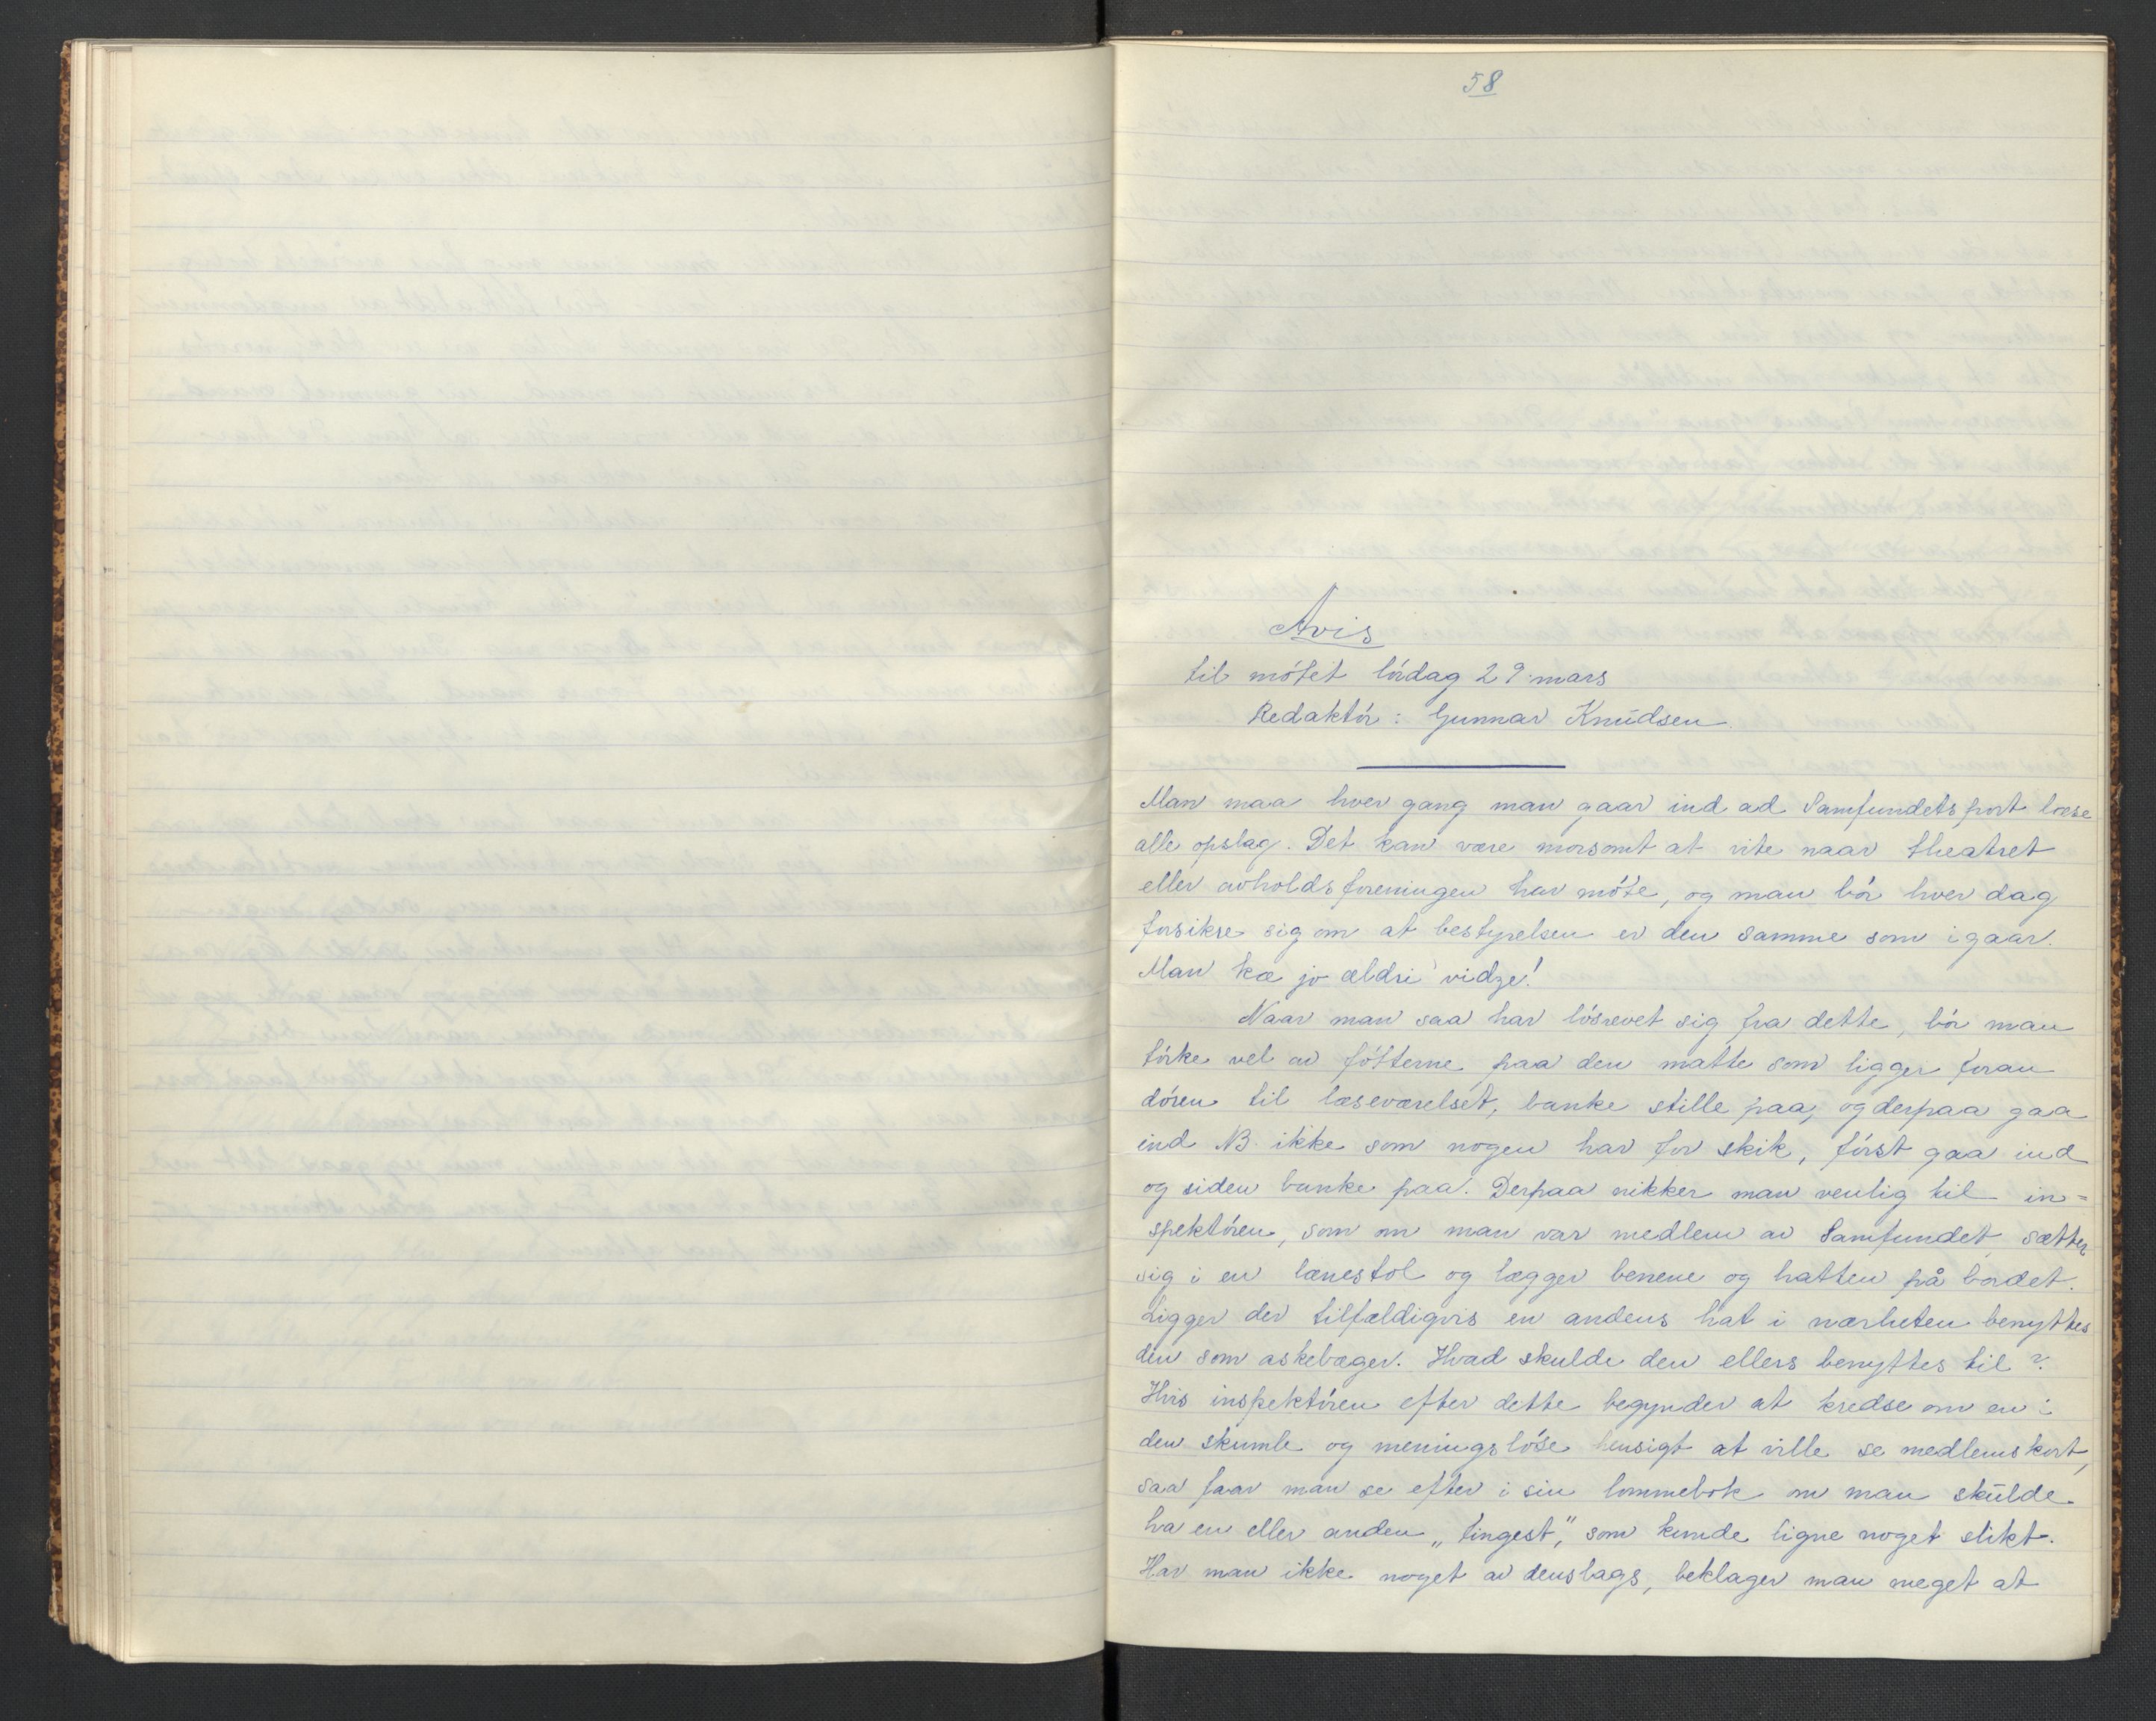 58
Avis
til mótet lórdag 29. mars
Redaktór: Gunnar Knudsen.
Man maa hver gang man gaar ind ad Samfundets port læse
alle opslag. Det kan være morsomt at vite naar theatret
eller avholdsforeningen har móte, og man bór hver dag
forsikre sig om at bestyrelsen er den samme som igaar.
Man kæ jo ældri vidze!
Naar man saa har lósrevet sig fra dette, bór man
tórke vel av fótterne paa den matte som ligger foran
dóren til læseværelset, banke stille paa, og derpaa gaa
ind NB. ikke som nogen har for skik, fórst gaa ind
og siden banke paa. Derpaa nikker man venlig til in=
spektóren, som om man var medlem av Samfundet, sætter
sig i en lænestol og lægger benene og hatten på bordet.
Ligger der tilfældigvis en andens hat i nærheten benyttes
den som askebæger. Hvad skulde den ellers benyttes til?
Hvis inspektóren efter dette begynder at kredse om en i
den skumle og meningslóse hensigt at ville se medlemskort,
saa faar man se efter i sin lommebok om man skulde
ha en eller anden „tingest“, som kunde ligne noget slikt.
Har man ikke noget av denslags, beklager man meget at